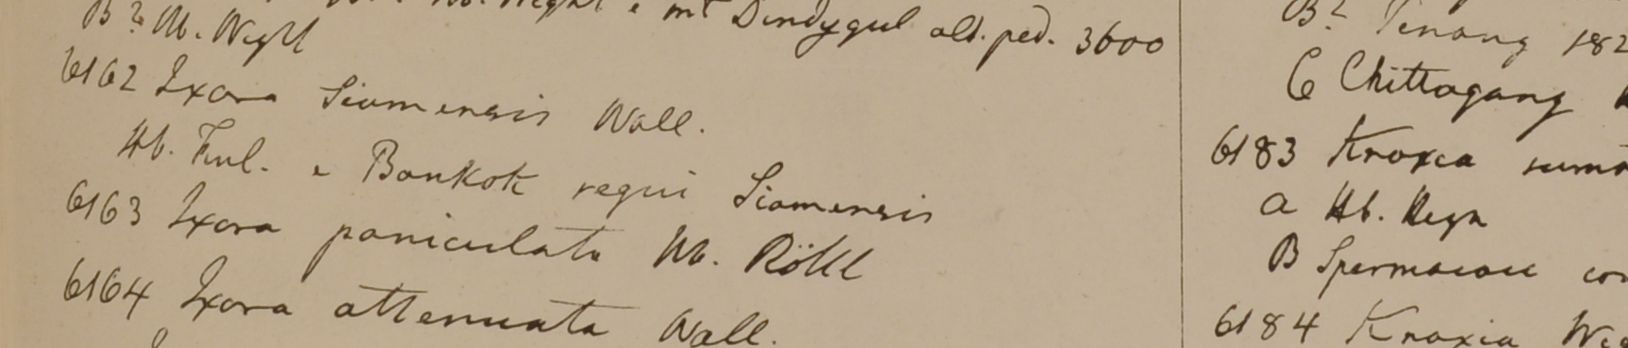 e mt Dindygul alt. ped. 3600
B? Hb. Wight
6162 Ixora Siamensis Wall.
Hb. Finl. e Bankok regni Siamensis
6163 Ixora paniculata Hb. Röttl
6164 Ixora attenuata Wall.
B? Penang 182
C Chittagang
6183 Knoxea suma
a Hb. Heyn
B Spermacoce cor
6184 Knoxia